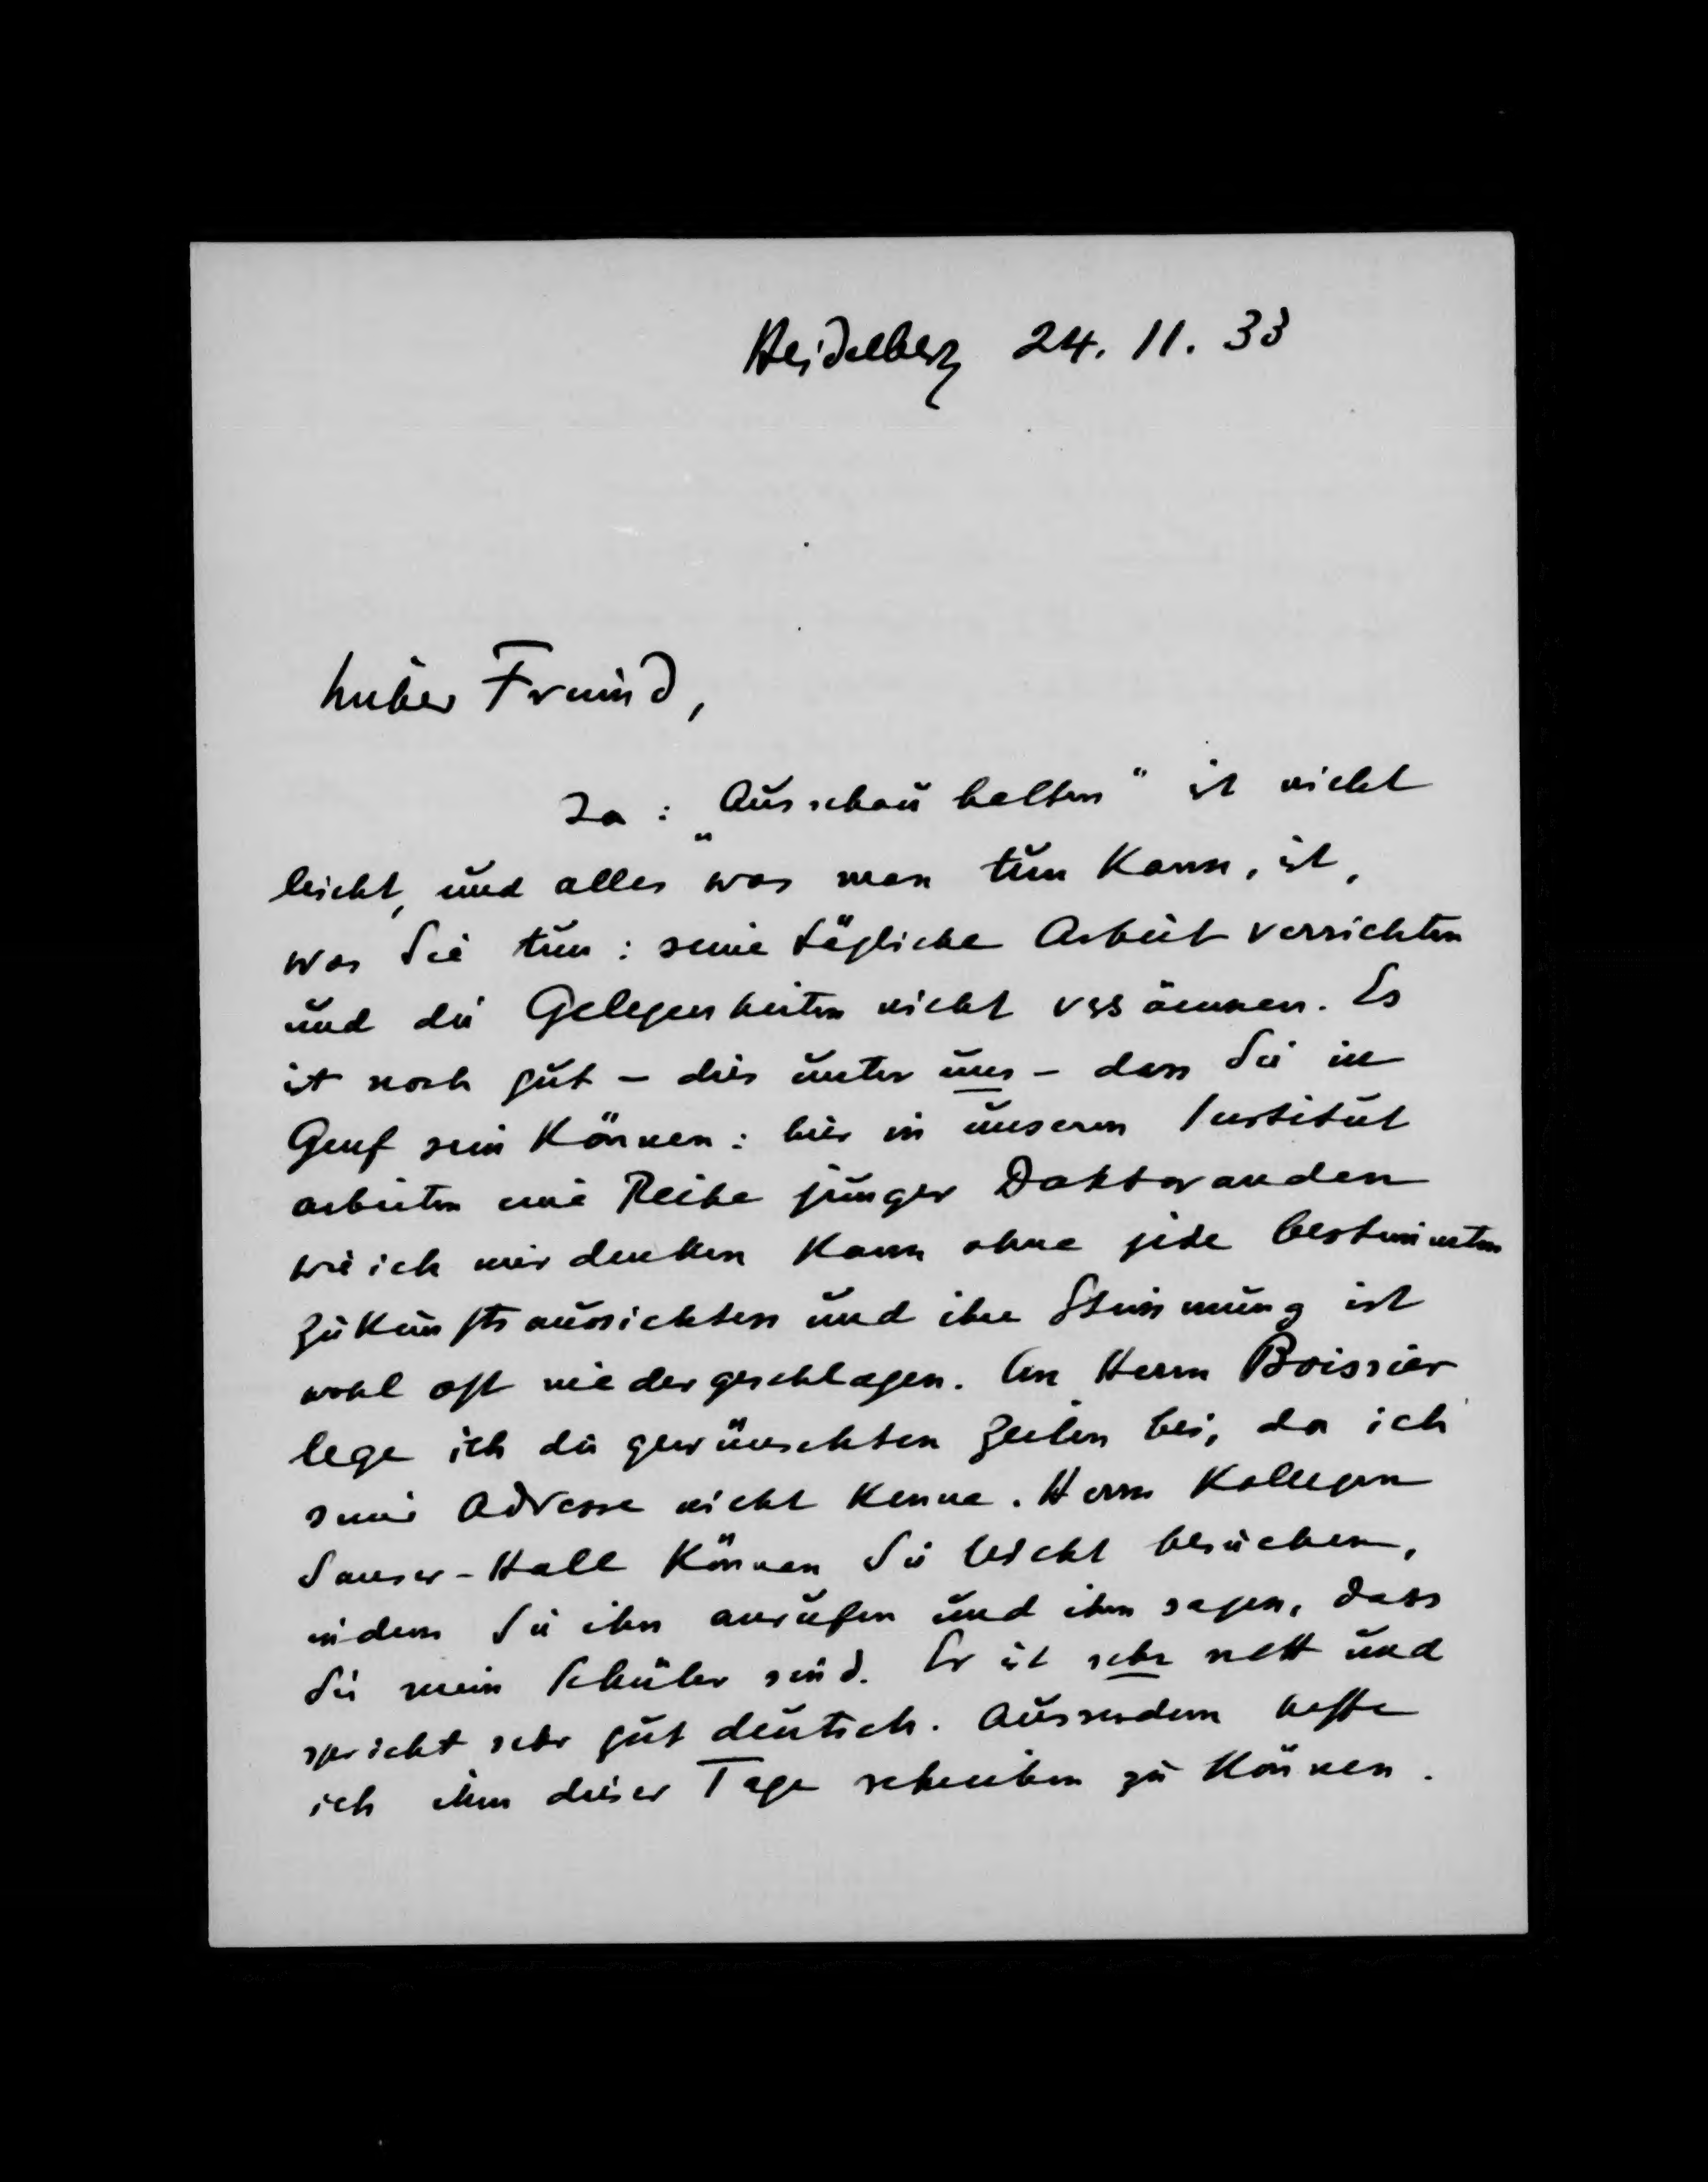 Heidelberg 24. 11. 33
Lieber Freund,
Ja: „Ausschau halten" ist nicht
leicht, und alles was man tun kann, ist,
was Sie tun: seine tägliche Arbeit verrichten
und die Gelegenheiten nicht versäumen. Es
ist noch gut – dies unter uns – dass Sie in
Genf sein können: hier in unserem Institut
arbeiten eine Reihe junger Doktoranden
wie ich mir denken kann ohne jede bestimmten
Zukunftsaussichten und ihre Stimmung ist
wohl oft niedergeschlagen. An Herrn Boissier
lege ich die gewünschten Zeilen bei, da ich
seine Adresse nicht kenne. Herrn Kollegen
Sauser-Hall können Sie leicht besuchen,
indem Sie ihn anrufen und ihm sagen, dass
Sie mein Schüler sind. Er ist sehr nett und
spricht sehr gut deutsch. Ausserdem hoffe
ich ihm dieser Tage schreiben zu können.